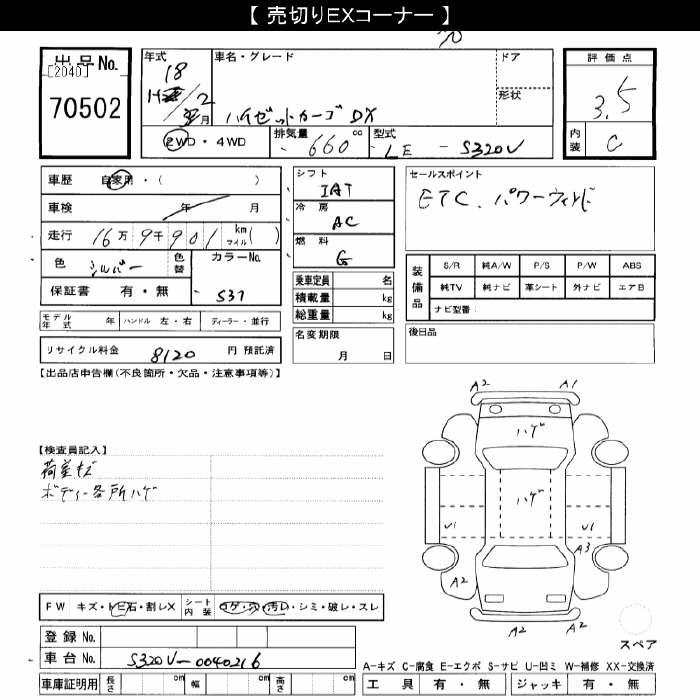 【 売切りEXコーナー 】
出品No.
[2040]
70502
年式
18
2
月
車名・グレード
ハイゼットカーゴ DX
ドア
形状
評価点
3.5
内装
C
2WD・4WD
排気量
660
cc
型式
LE - S320V
車歴
自家用・( )
車検
年 月
走行
16万 9千901 km マイル( )
色
シルバー
色替
カラーNo.
S37
保証書 有・無
シフト
IAT
冷房
AC
燃料
G
乗車定員 名
積載量 kg
総重量 kg
セールスポイント
ETC. パワーウィンド
装備品
S/R 純A/W P/S P/W ABS
純TV 純ナビ 革シート 外ナビ エアB
ナビ型番:
モデル年式 年 ハンドル 左・右 ディーラー・並行
名変期限
月 日
後日品
リサイクル料金 8120 円 預託済
【出品店申告欄(不良箇所・欠品・注意事項等)】
【検査員記入】
荷室キズ
ボディー各所ハゲ
A2 A1
ハゲ
ハゲ
U1 U1
A3
A2 A2
A2 A2
スペア
FW キズ・トビ石・割レX
シート内装
コゲ・穴・汚レ・シミ・破レ・スレ
登録 No.
車台 No.
S320V-0040216
車庫証明用 長さ cm 幅 cm 高さ cm
A-キズ C-腐食 E-エクボ S-サビ U-凹ミ W-補修 XX-交換済
工具 有・無 ジャッキ 有・無